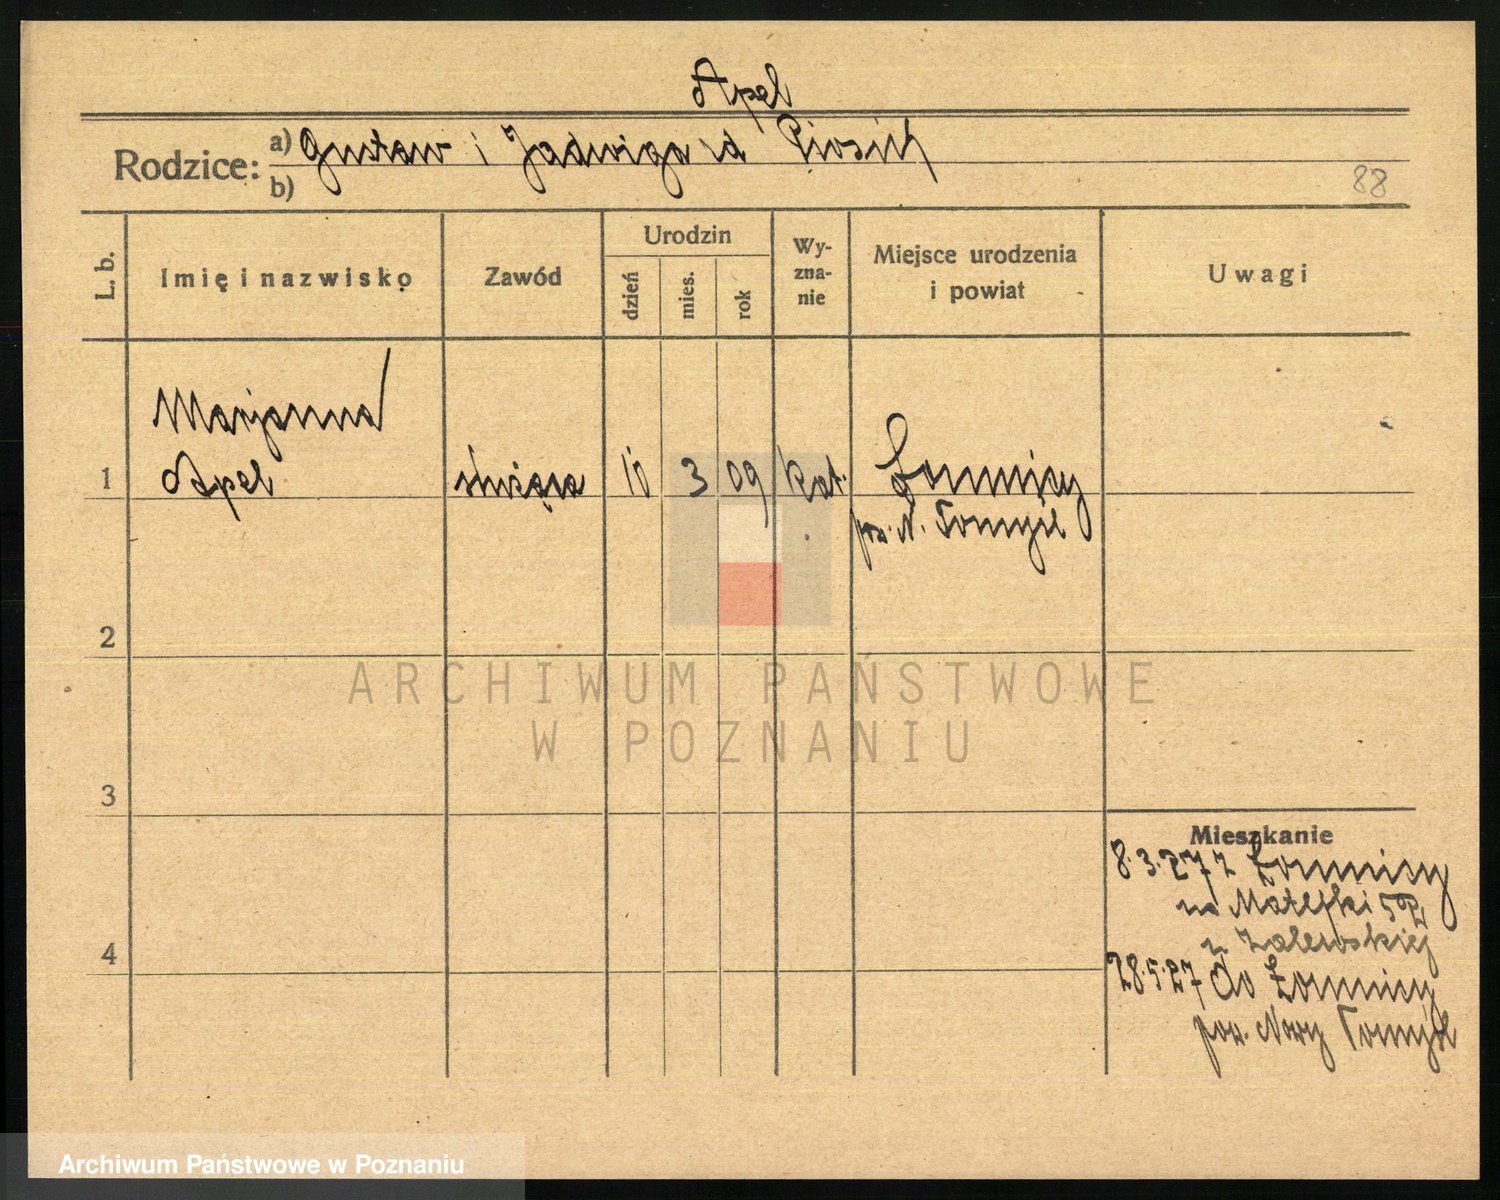 Apel
Rodzice: a) Gustaw i Jadwiga
b)
88
L. b.
Imię i nazwisko
Zawód
Urodzin
dzień
mies.
rok
Wy-
zna-
nie
Miejsce urodzenia
i powiat
Uwagi
Marjanna
1 Apel służąca 10 3 09 kat. Łomnicy
pow. N. Tomyśl
2
3
4
Mieszkanie
8.3.27 z Łomnicy
na Matejki
u Zalewskiej
28.5.27 do Łomnicy
pow. Nowy Tomyśl
ARCHIWUM PAŃSTWOWE
W POZNANIU
Archiwum Państwowe w Poznaniu